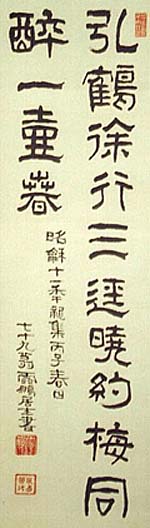 引鶴徐行三逕曉約梅同
醉一壺春
昭龢十一年龍集丙子春日
七十九翁鵬居士書